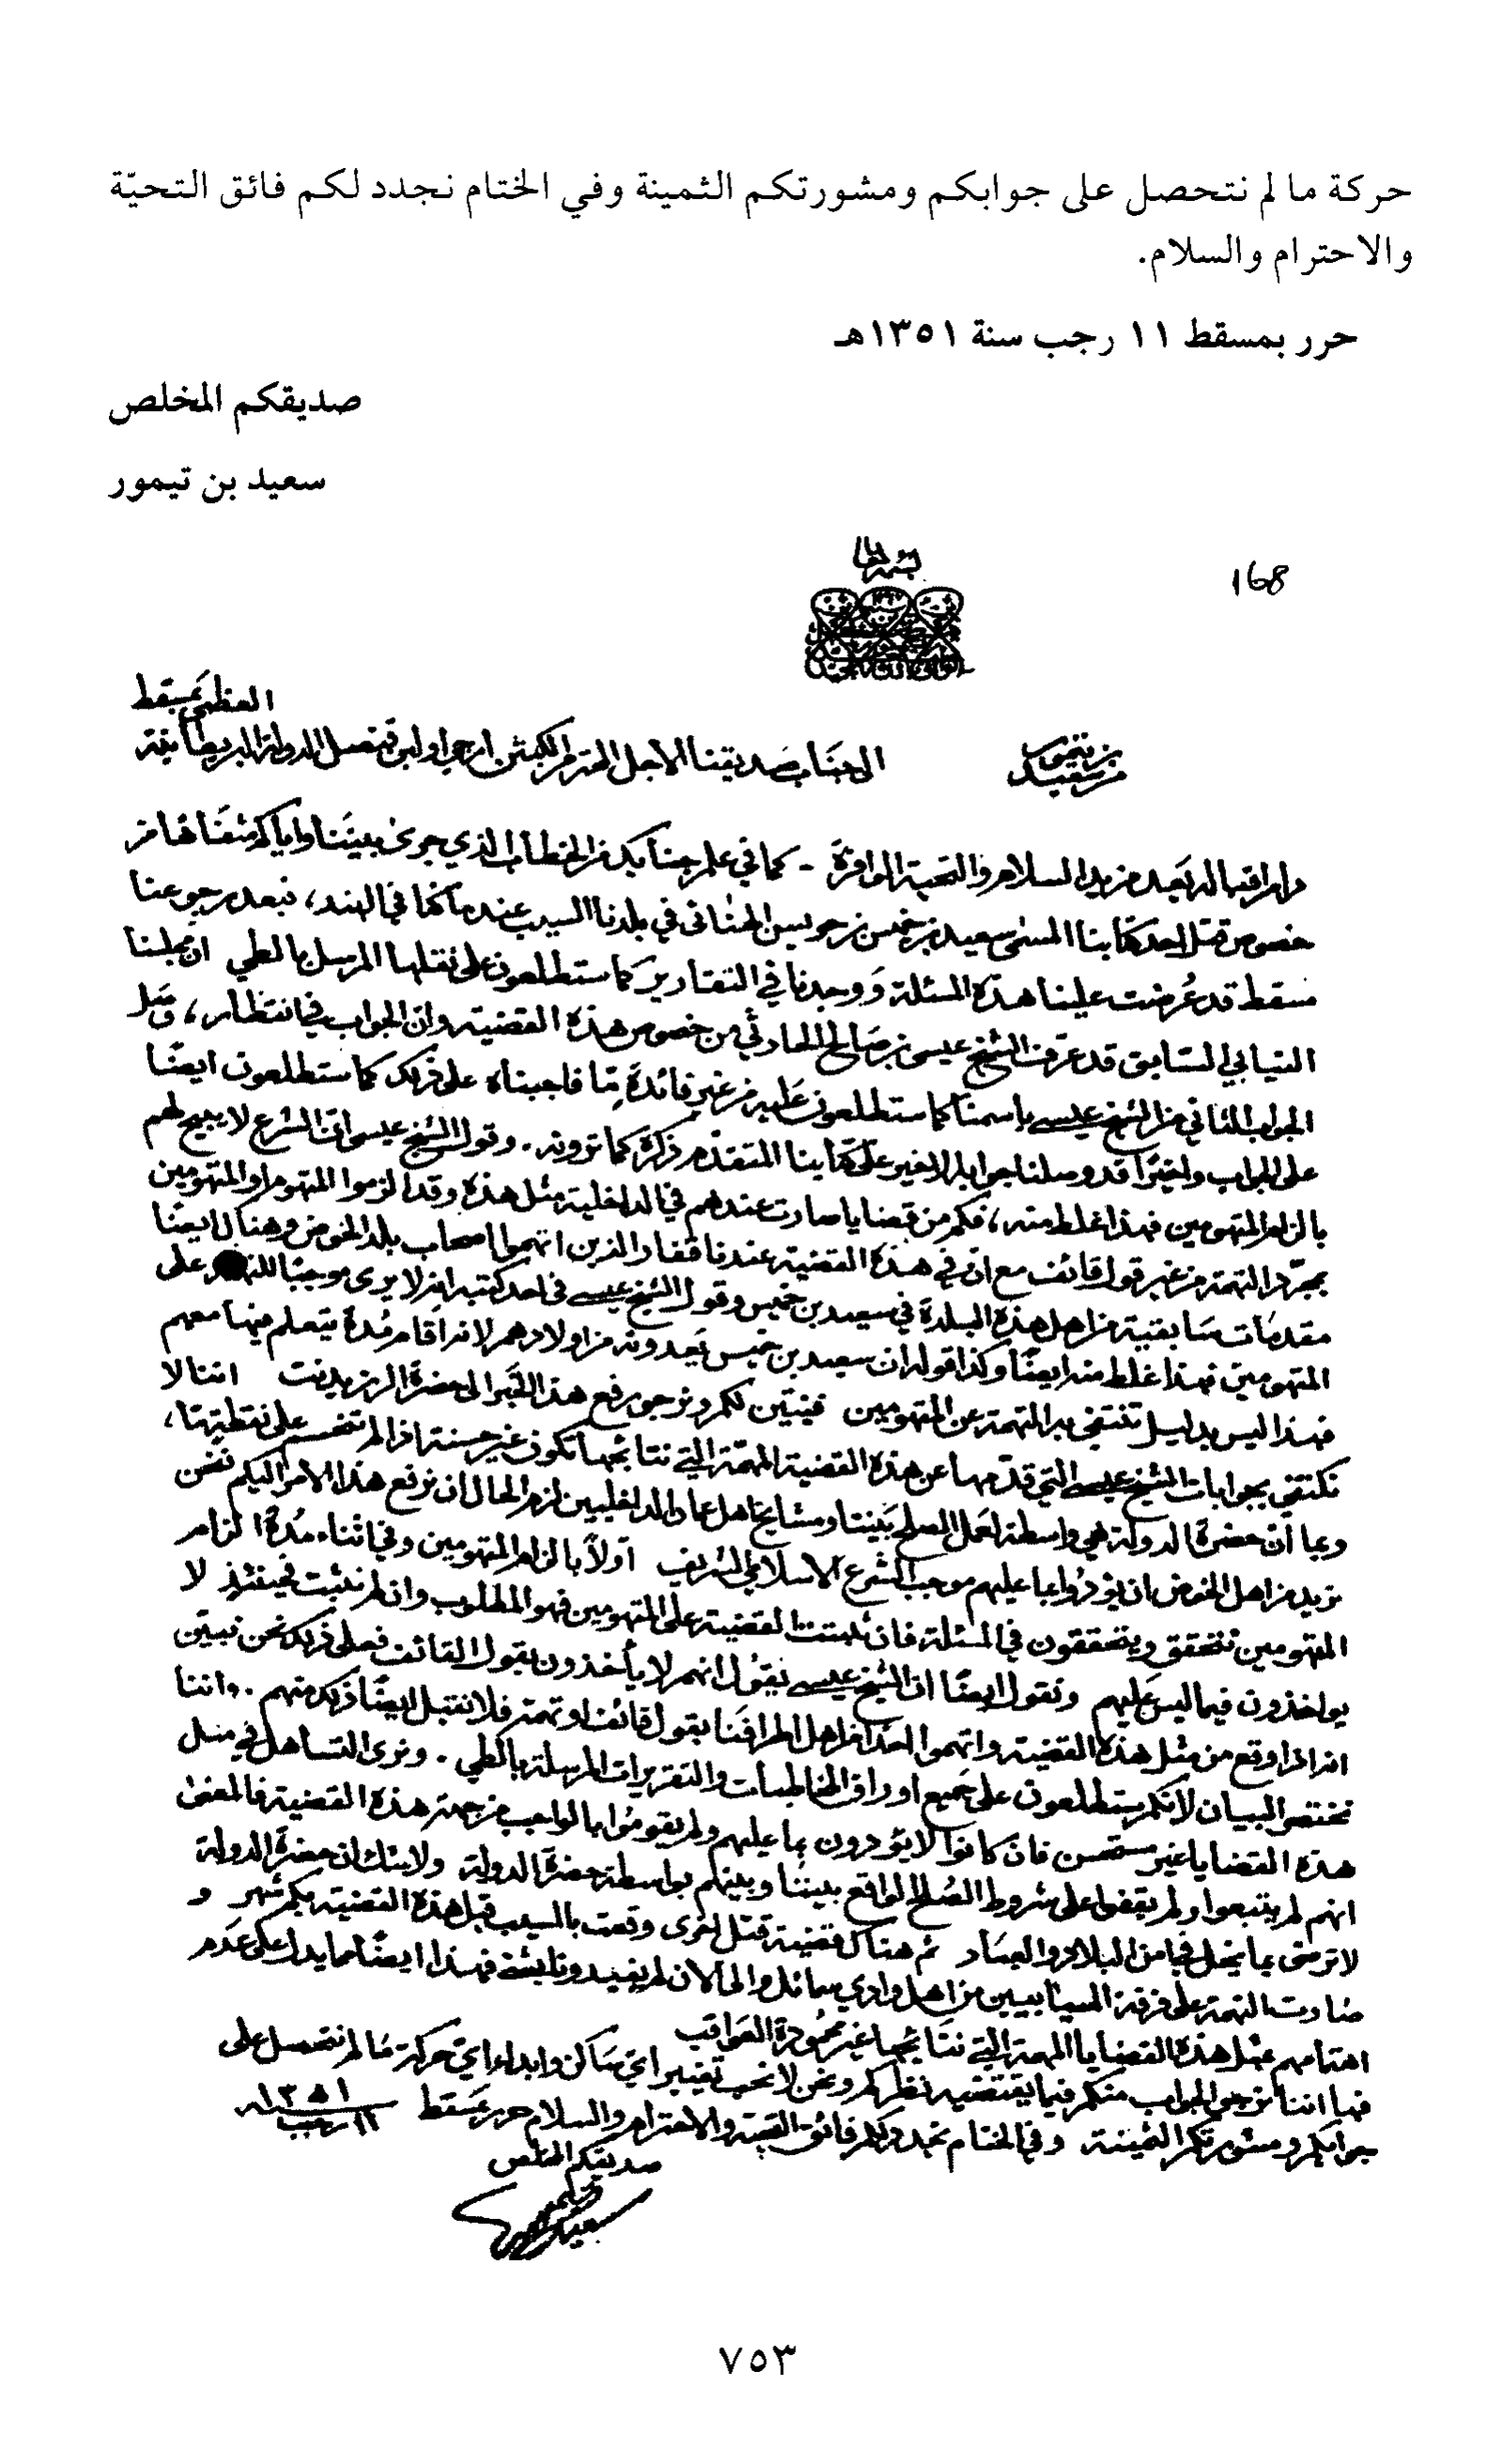 حركة ما لم نتحصل على جوابكم ومشورتكم الثمينة وفي الختام نجدد لكم فائق التحيّة
والاحترام والسلام.
حرر بمسقط ١١ رجب سنة ١٣٥١هـ
صديقكم المخلص
سعيد بن تيمور
168
العظمى بمسقط
من سعيد بن تيمور
الى جناب صديقنا الاجل المحترم الكبتن قنصل الدولة البريطانية
دام اقباله بعد مزيد السلام والتحية الوافرة - كما في علم جنابكم الخطاب الذي جرى بيننا واياكم شفاها من
خصوص قتل احد كتابنا المسمى سعيد بن خميس بن حويس في بلدنا السيب عند ما كنا في الهند، فبعد رجوعنا
مسقط قد عُرضت علينا هذه المسئلة ووجدنا في التقارير كما ستطلعون على نقلها المرسل بالطي ان مجلسنا
النيابي السابق قد عرف الشيخ عيسى بن صالح الحارثي من خصوص هذه القضية وان الجواب في انتظار، وصل
الجواب الثاني من الشيخ عيسى باسمنا كما ستطلعون عليه من غير فائدة ما فاجبناه على ذلك كما ستطلعون ايضًا
على الجواب واخيرًا قد وصلنا جوابه الاخير على كتابنا المتقدم ذكره كما ترونه. وقول الشيخ عيسى ان الشرع لا يبيح لهم
بالزام المتهومين فهذا غلط منه، فكم من قضايا صارت عندهم في الداخلية مثل هذه وقد الزموا المتهوم او المتهومين
بمجرّد التهمة من غير قول قائف مع ان في هذه القضية عندنا قفار الذين اتهموا اصحاب بلد الخوض وهناك ايضًا
مقدمات سابقية من اهل هذه البلدة في سعيد بن خميس وقول الشيخ عيسى في احد كتبه انه لا يرى موجبًا على
المتهومين فهذا غلط منه ايضًا وكذا قوله ان سعيد بن خميس يعدونه من اولادهم لانه اقام مُدة يتعلم فيها معهم
فهذا ليس بدليل تنتفي به التهمة عن المتهومين فنبيّن لكم ونرجو رفع هذا الخبر الى حضرة الرزيدنت اننا لا
نكتفي بجوابات الشيخ عيسى التي قدّمها عن هذه القضية المهمة التي نتائجها تكون غير حسنة اذا لم على نقطتها،
وبما ان حضرة الدولة هي واسطة لعمل الصلح بيننا ومشايخ اهل عمان الداخليين لزم الحال ان نرفع هذا الامر اليكم نحن
نريد من اهل الخوض ان يؤدُّوا بما عليهم موجب الشرع الاسلامي الشريف اولاً بالزام المتهومين وفي اثناء مُدة الزام
المتهومين نتحقق ويتحققون في المسئلة فان ثبتت القضية على المتهومين فهو المطلوب وان لم تثبت فحينئذٍ لا
يواخذون فيما ليس عليهم ونقول ايضًا ان الشيخ عيسى يقول انهم لا يأخذون بقول القائف فعلى ذلك نحن نبيّن
انه اذا وقع من مثل هذه القضية واتهموا احدًا من اهل اطرافنا بقول قائف او تهمة فلا نقبل ايضًا ذلك منهم. واننا
نختصر البيان لانكم ستطلعون على جميع اوراق المخاطبات والتقريرات المرسلة بالطي. ونرى التساهل في مثل
هذه القضايا غير مستحسن فان كانوا لا يؤدون بما عليهم ولم يقوموا بالواجب من جهة هذه القضية فالمعنى
انهم لم يتبعوا ولم يقفوا على شروط الصُلح الواقع بيننا وبينهم بواسطة حضرة الدولة ولا شك ان حضرة الدولة
لا ترضى بما يخل في امن البلاد والعباد ثم هناك قضية قتل اخرى وقعت بالسيب قبل هذه القضية بكم شهر و
صارت التهمة على فرقة السيابيين من اهل وادي سمائل والى الآن لم يفيدونا بشئ فهذا ايضًا مما يدل على عدم
اهتمامهم بمثل هذه القضايا المهمة التي نتائجها غير محمودة العواقب
فها اننا نرجو الجواب منكم فيما يقتضيه نظركم ونحن لا نحب تغيير اي ساكن وابداء اي حركة ما لم نتحصل على
جوابكم ومشورتكم الثمينة وفي الختام نجدد لكم فائق التحية والاحترام والسلام حرر بمسقط ١١ رجب ١٣٥١
صديقكم المخلص
سعيد بن تيمور
٧٥٣